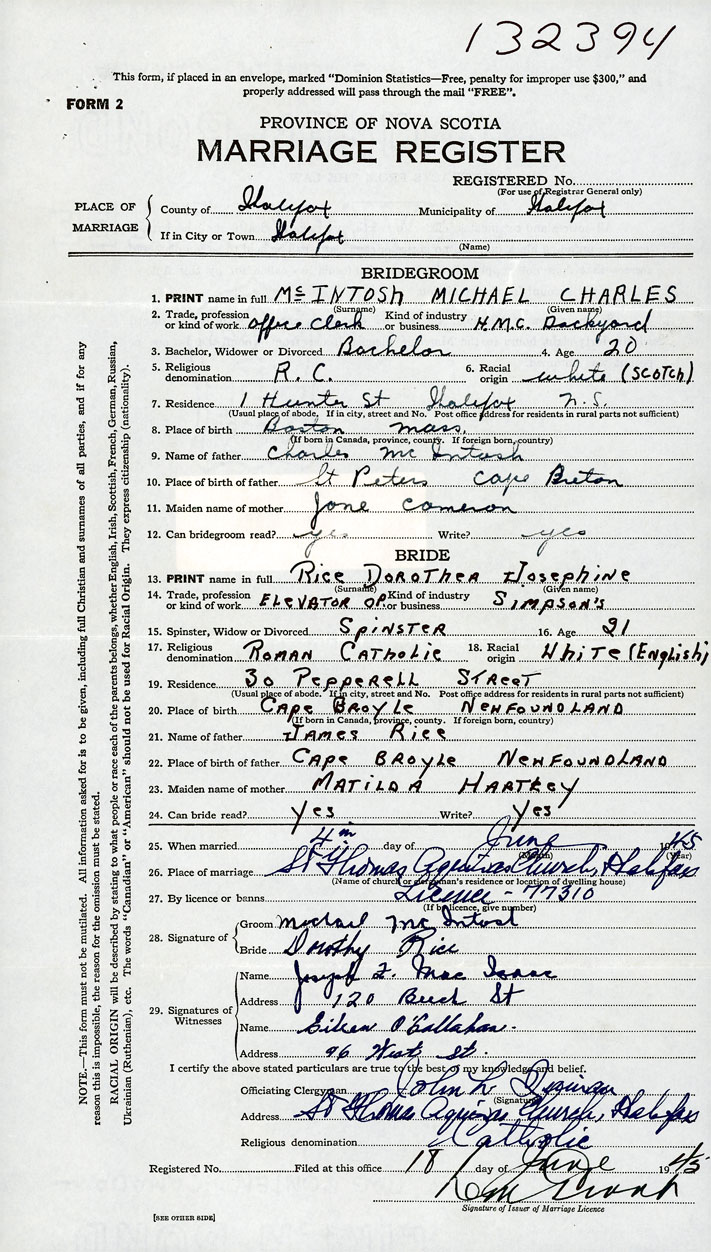 132394
This form, if placed in an envelope, marked "Dominion Statistics—Free, penalty for improper use $300," and
properly addressed will pass through the mail "FREE".
FORM 2
PROVINCE OF NOVA SCOTIA
MARRIAGE REGISTER
REGISTERED No.
(For use of Registrar General only)
PLACE OF MARRIAGE
County of Halifax Municipality of Halifax
If in City or Town Halifax
(Name)
BRIDEGROOM
1. PRINT name in full McINTOSH MICHAEL CHARLES
(Surname) (Given name)
2. Trade, profession or kind of work office clerk Kind of industry or business H.M.C. Dockyard
3. Bachelor, Widower or Divorced Bachelor 4. Age 20
5. Religious denomination R. C. 6. Racial origin white (SCOTCH)
7. Residence 1 Hunter St Halifax N.S.
(Usual place of abode. If in city, street and No. Post office address for residents in rural parts not sufficient)
8. Place of birth Boston mass.
(If born in Canada, province, county. If foreign born, country)
9. Name of father Charles Mc Intosh
10. Place of birth of father St Peters Cape Breton
11. Maiden name of mother Jane Cameron
12. Can bridegroom read? yes Write? yes
BRIDE
13. PRINT name in full RICE DOROTHEA JOSEPHINE
(Surname) (Given name)
14. Trade, profession or kind of work ELEVATOR OP Kind of industry or business SIMPSON'S
15. Spinster, Widow or Divorced SPINSTER 16. Age 21
17. Religious denomination ROMAN CATHOLIC 18. Racial origin WHITE (English)
19. Residence 30 PEPPERELL STREET
(Usual place of abode. If in city, street and No. Post office address for residents in rural parts not sufficient)
20. Place of birth CAPE BROYLE NEWFOUNDLAND
(If born in Canada, province, county. If foreign born, country)
21. Name of father JAMES RICE
22. Place of birth of father CAPE BROYLE NEWFOUNDLAND
23. Maiden name of mother MATILDA HARTERY
24. Can bride read? Yes Write? Yes
25. When married 4th day of June 1945
(Month) (Year)
26. Place of marriage St Thomas Aquinas Church, Halifax
(Name of church or clergyman's residence or location of dwelling house)
27. By licence or banns Licence - 77310
(If by licence, give number)
28. Signature of
Groom Michael Mc Intosh
Bride Dorothy Rice
29. Signatures of Witnesses
Name Joseph F. Mac Isaac
Address 120 Beech St
Name Eileen O'Callahan
Address 96 West St.
I certify the above stated particulars are true to the best of my knowledge and belief.
Officiating Clergyman John L.
(Signature)
Address St Thomas Aquinas Church, Halifax
Religious denomination Catholic
Registered No. Filed at this office 18 day of June 1945
Signature of Issuer of Marriage Licence
[SEE OTHER SIDE]
NOTE.—This form must not be mutilated. All information asked for is to be given, including full Christian and surnames of all parties, and if for any
reason this is impossible, the reason for the omission must be stated.
RACIAL ORIGIN will be described by stating to what people or race each of the parents belongs, whether English, Irish, Scottish, French, German, Russian,
Ukrainian (Ruthenian), etc. The words "Canadian" or "American" should not be used for Racial Origin. They express citizenship (nationality).